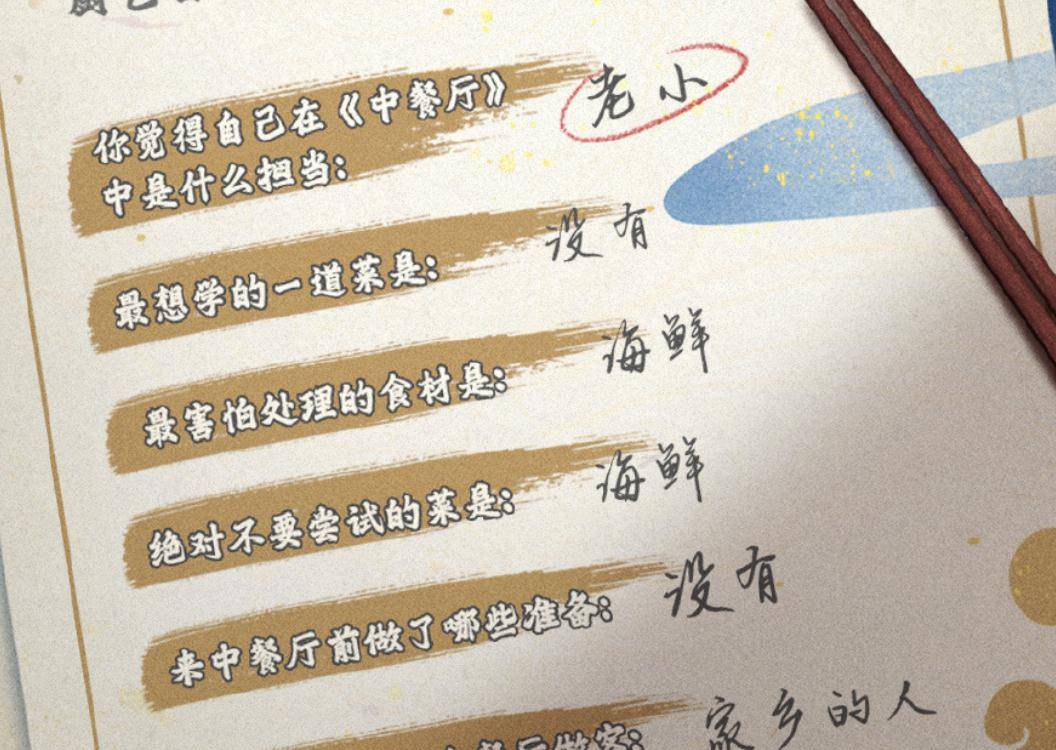 你觉得自己在《中餐厅》
中是什么担当: 老小
最想学的一道菜是: 没有
最害怕处理的食材是: 海鲜
绝对不要尝试的菜是: 海鲜
来中餐厅前做了哪些准备: 没有
中餐厅做客: 家乡的人